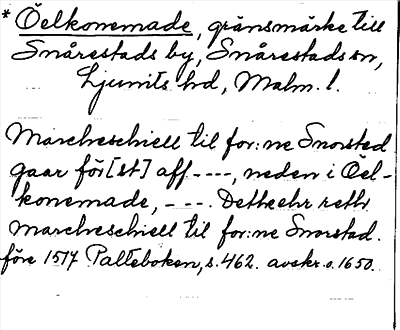 * Öelkonemade, gränsmärke till
Snårestads by, Snårestads sn,
Ljunits hd, Malm. l.
Marcheschiell til for:ne Snorsted
gaar för[st] aff ----, neden i Öel-
konemade, ---. Dettkehr reth
marcheschiell til for:ne Snorstad.
före 1517 Palteboken, s. 462. avskr. o. 1650.